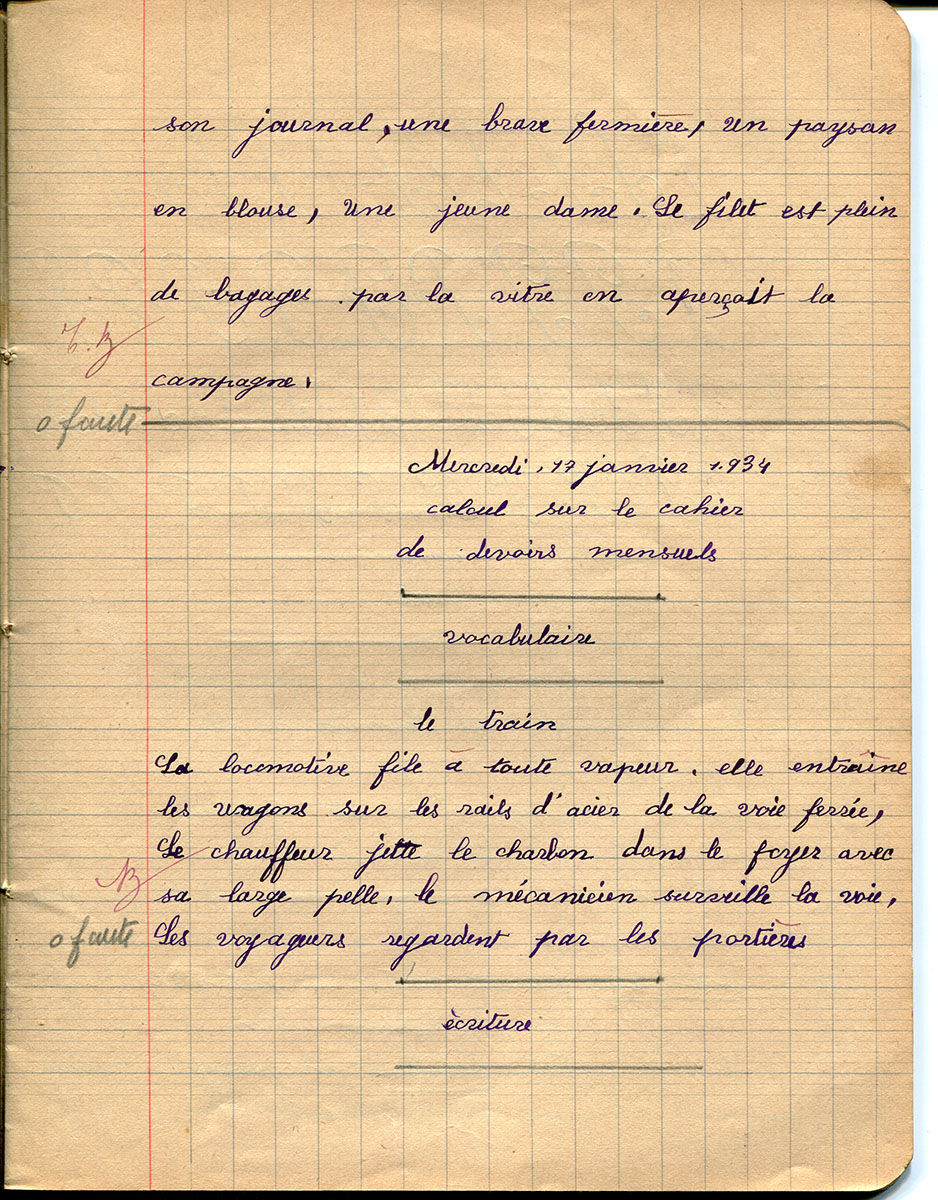 son journal, une brave fermière, un paysan
en blouse, une jeune dame. Le filet est plein
de bagages. par la vitre on aperçoit la
T.B
campagne.
0 faute
Mercredi, 17 janvier 1.934
calcul sur le cahier
de devoirs mensuels
vocabulaire
le train
La locomotive file à toute vapeur. elle entraîne
les wagons sur les rails d'acier de la voie ferrée,
Le chauffeur jette le charbon dans le foyer avec
B
sa large pelle, le mécanicien surveille la voie,
0 faute
Les voyaguers regardent par les portières
ècriture